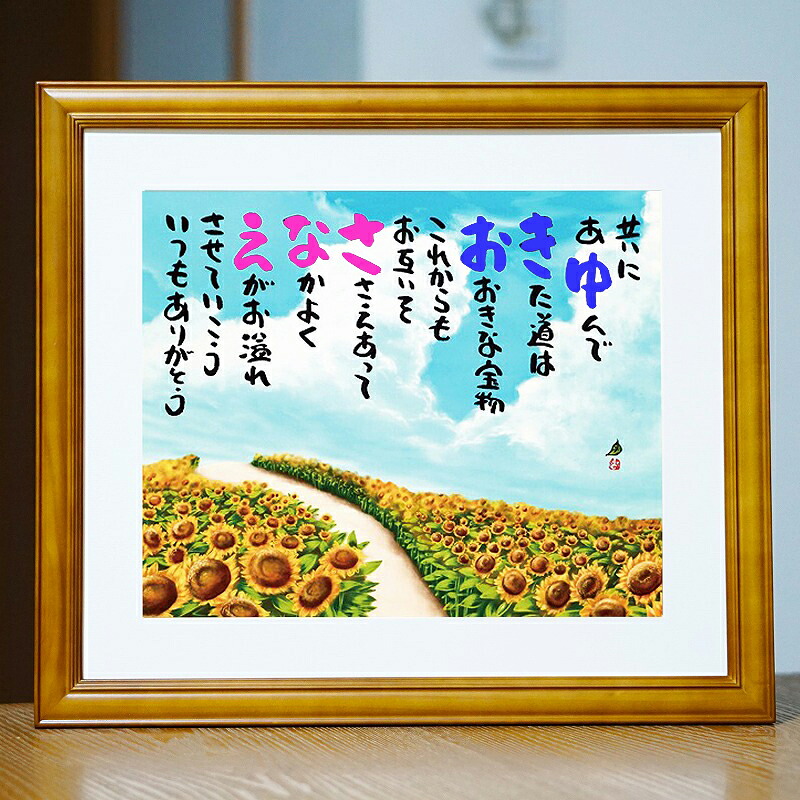 共に
あゆんで
きた道は
おおきな宝物
これからも
お互いを
ささえあって
なかよく
えがお溢れ
させていこう
いつもありがとう